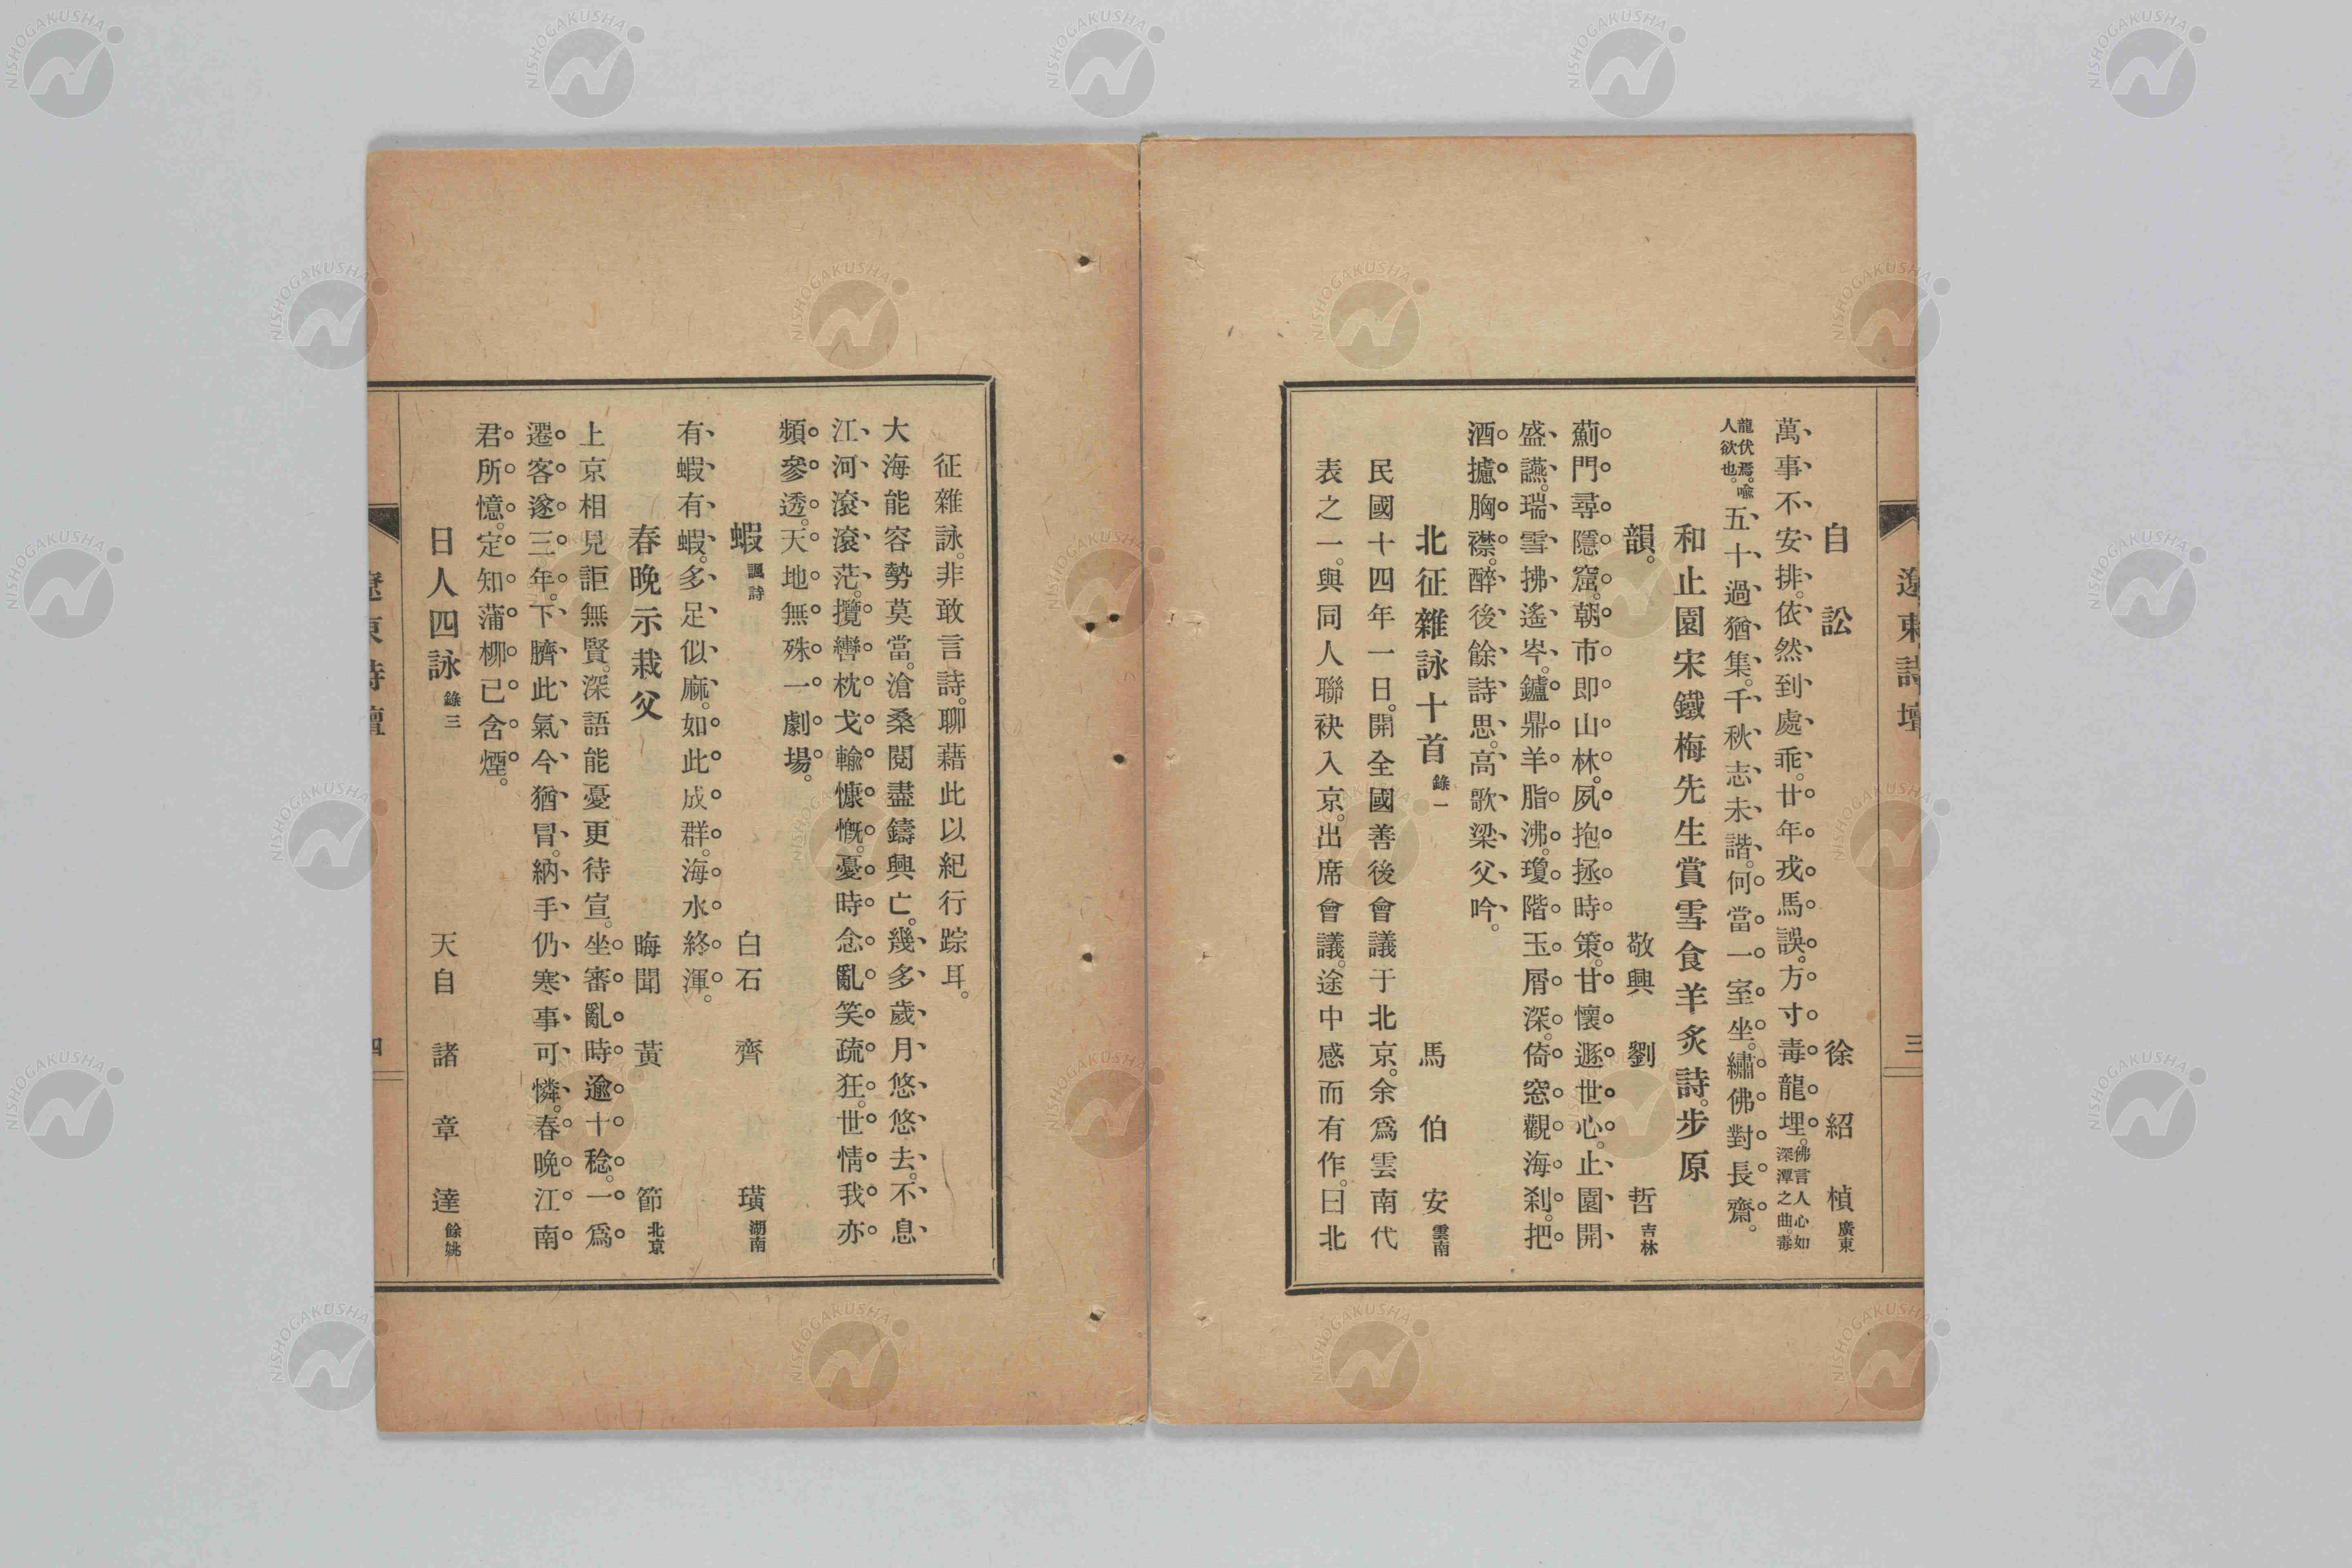 遼東詩壇
三
自訟 徐紹楨 廣東
萬事不安排。依然到處乖。廿年戎馬誤。方寸毒龍埋。佛言人心如深潭之曲。毒
龍伏焉。喻人欲也。五十過猶集。千秋志未諧。何當一室坐。繡佛對長齋。
和止園宋鐵梅先生賞雪食羊炙詩。步原
韻。 敬興 劉哲 吉林
薊門尋隱窟。朝市即山林。夙抱拯時策。甘懷遯世心。止園開
盛讌。瑞雪拂遙岑。鑪鼎羊脂沸。瓊階玉屑深。倚窓觀海剎。把
酒攄胸襟。醉後餘詩思。高歌梁父吟。
北征雜詠十首 錄一 馬伯安 雲南
民國十四年一日。開全國善後會議于北京。余爲雲南代
表之一。與同人聯袂入京。出席會議。途中感而有作。曰北
征雜詠。非敢言詩。聊藉此以紀行踪耳。
大海能容勢莫當。滄桑閱盡鑄興亡。幾多歲月悠悠去。不息
江河滾滾茫。攬轡枕戈輸慷慨。憂時念亂笑疏狂。世情我亦
頻參透。天地無殊一劇場。
蝦 諷詩 白石 齊璜 湖南
有蝦有蝦。多足似麻。如此成群。海水終渾。
春晚示栽父 晦聞 黃節 北京
上京相見詎無賢。深語能憂更待宣。坐審亂時逾十稔。一爲
遷客遂三年。下臍此氣今猶冒。納手仍寒事可憐。春晚江南
君所憶。定知蒲柳已含煙。
日人四詠 錄三 天自 諸章達 餘姚
遼東詩壇
四